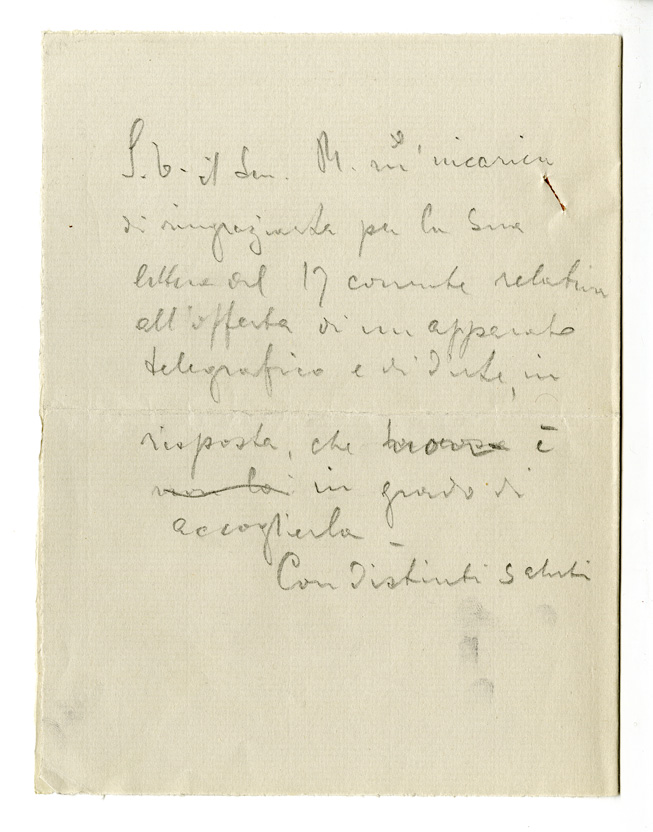 S. E. il Sen. M. m'incarica
di ringraziarla per la Sua
lettera del 17 corrente relativa
all'offerta di un apparato
telegrafico e di dirle, in
risposta, che è
non la in grado di
accoglierla –
Con distinti saluti